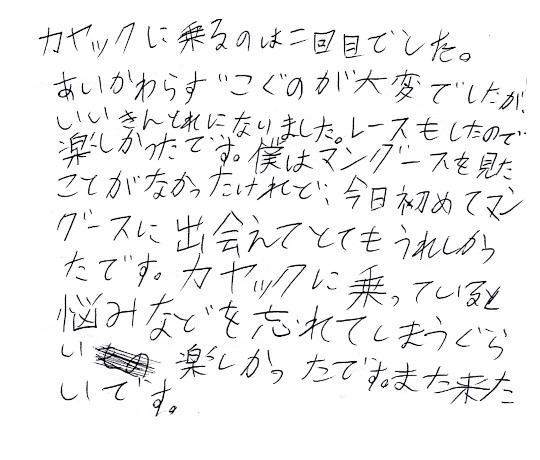 カヤックに乗るのは二回目でした。
あいかわらずこぐのが大変でしたが、
いいきんとれになりました。レースもしたので
楽しかったです。僕はマングースを見た
ことがなかったけれど、今日初めてマン
グースに出会えてとてもうれしかっ
たです。カヤックに乗っていると
悩みなどを忘れてしまうぐら
い楽しかったです。また来た
いです。